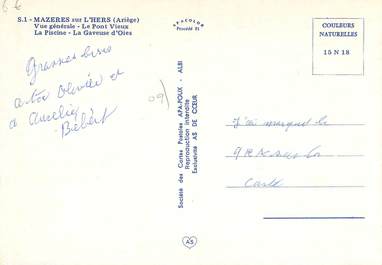 6 €
S.1 - MAZERES sur L'HERS (Ariège)
Vue générale - Le Pont Vieux
La Piscine - La Gaveuse d'Oies
Grosses bises
a toi Olivier et
à Aurélie
Bébert
09)
APACOLOR
Procédé EL
Société des Cartes Postales APA-POUX - ALBI
Reproduction interdite
Exclusivité AS DE CŒUR
AS
COULEURS
NATURELLES
15 N 18
J'ai marqué le
sur la
Carte